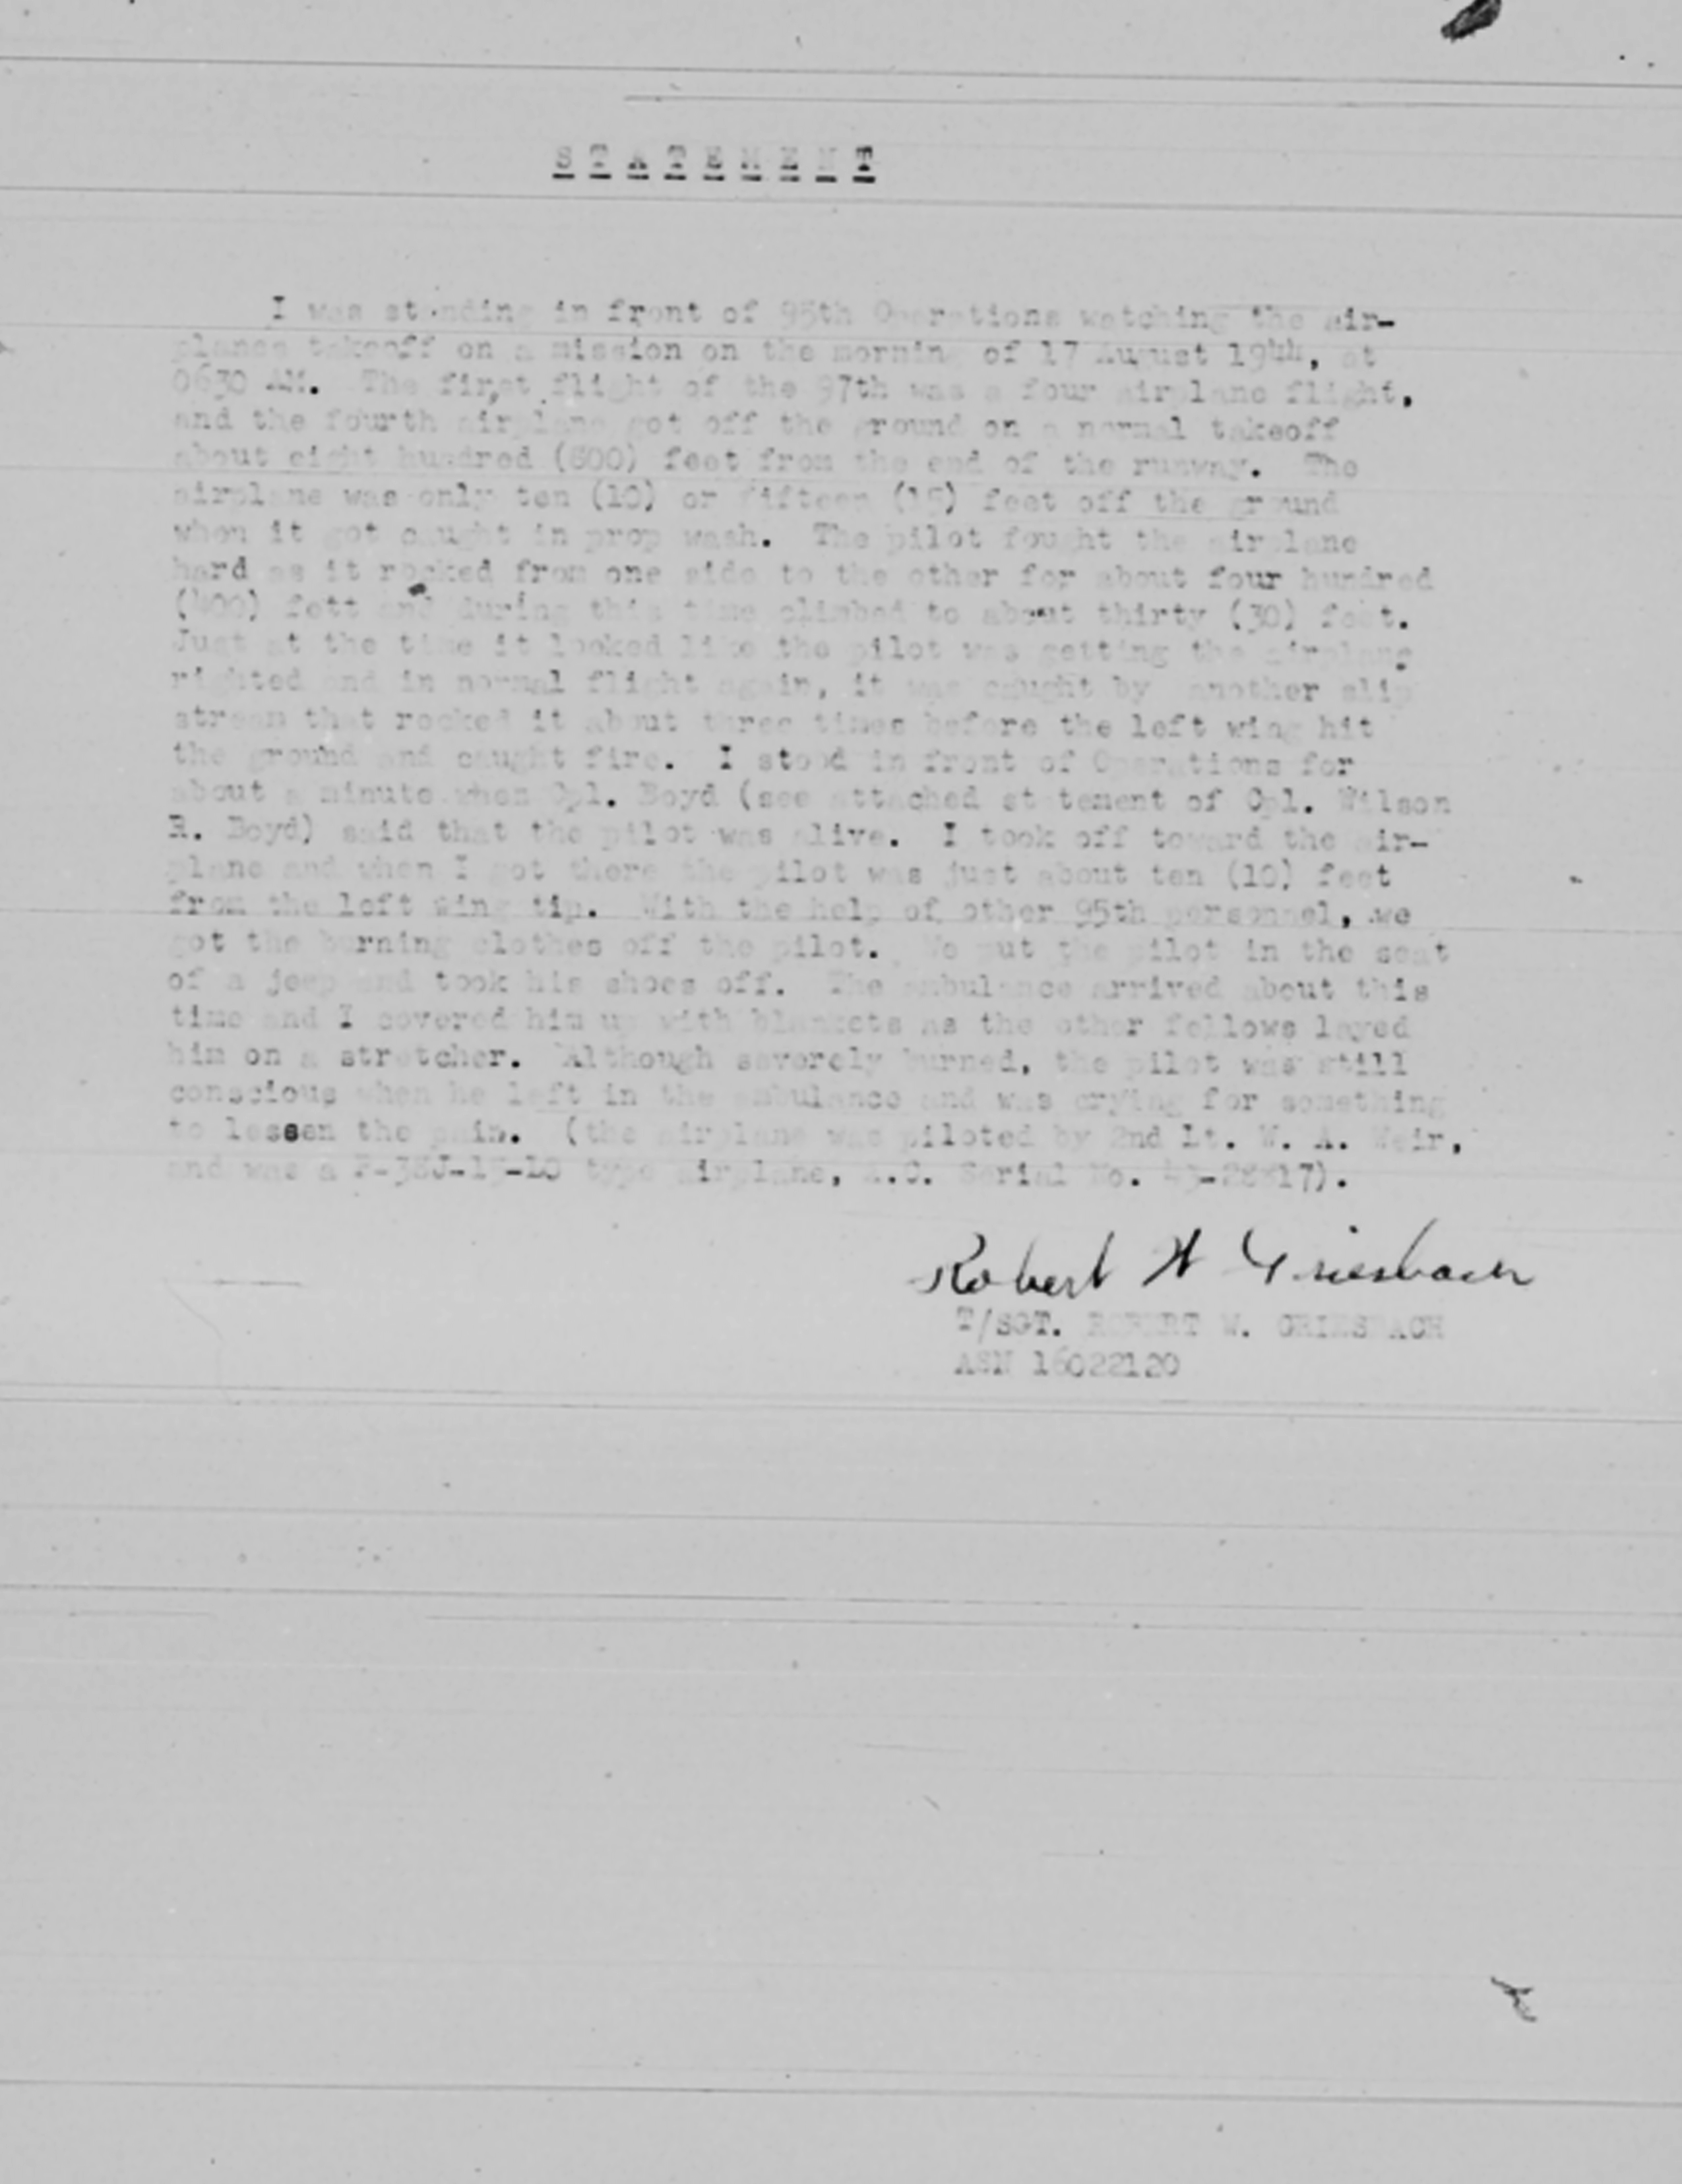 S T A T E M E N T
I was standing in front of 95th Operations watching the air-
planes takeoff on a mission on the morning of 17 August 1944, at
0630 AM. The first flight of the 97th was a four airplane flight,
and the fourth airplane got off the ground on a normal takeoff
about eight hundred (800) feet from the end of the runway. The
airplane was only ten (10) or fifteen (15) feet off the ground
when it got caught in prop wash. The pilot fought the airplane
hard as it rocked from one side to the other for about four hundred
(400) fett and during this time climbed to about thirty (30) feet.
Just at the time it looked like the pilot was getting the airplane
righted and in normal flight again, it was caught by another slip
stream that rocked it about three times before the left wing hit
the ground and caught fire. I stood in front of Operations for
about a minute when Cpl. Boyd (see attached statement of Cpl. Wilson
R. Boyd) said that the pilot was alive. I took off toward the air-
plane and when I got there the pilot was just about ten (10) feet
from the left wing tip. With the help of other 95th personnel, we
got the burning clothes off the pilot. We put the pilot in the seat
of a jeep and took his shoes off. The ambulance arrived about this
time and I covered him up with blankets as the other fellows layed
him on a stretcher. Although severely burned, the pilot was still
conscious when he left in the ambulance and was crying for something
to lessen the pain. (the airplane was piloted by 2nd Lt. W. A. Weir,
and was a P-38J-15-LO type airplane, A.C. Serial No.
Robert W Griesbach
T/SGT. ROBERT W. GRIESBACH
ASN 16022120